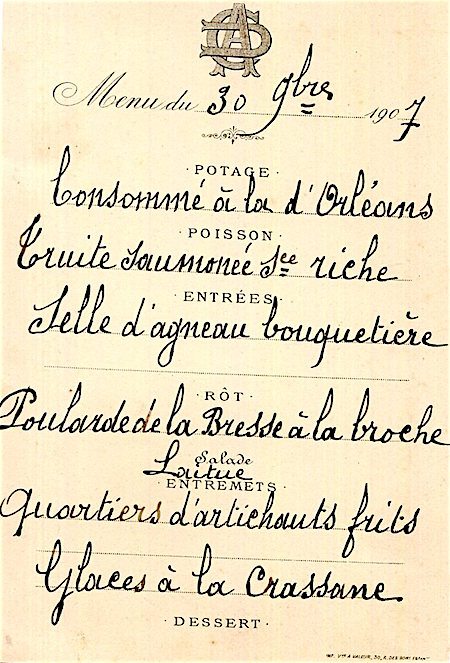 Menu du 30 9bre 1907
POTAGE
Consommé à la d'Orléans
POISSON
Truite saumonée Sce riche
ENTRÉES
Selle d'agneau bouquetière
RÔT
Poularde de la Bresse à la broche
Salade
Laitue
ENTREMETS
Quartiers d'artichauts frits
Glaces à la Crassane
DESSERT